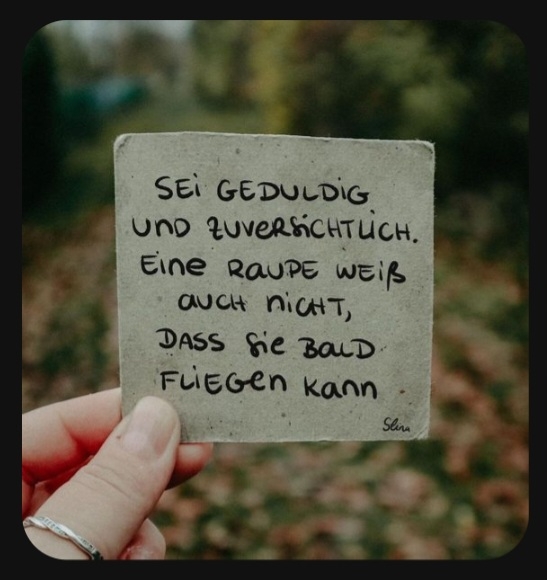 SEi GEDULDiG
UND ZUVERSiCHTLiCH.
Eine RAUPE WEiß
AUCH niCHT,
DASS Sie BALD
FLiEGEn kann